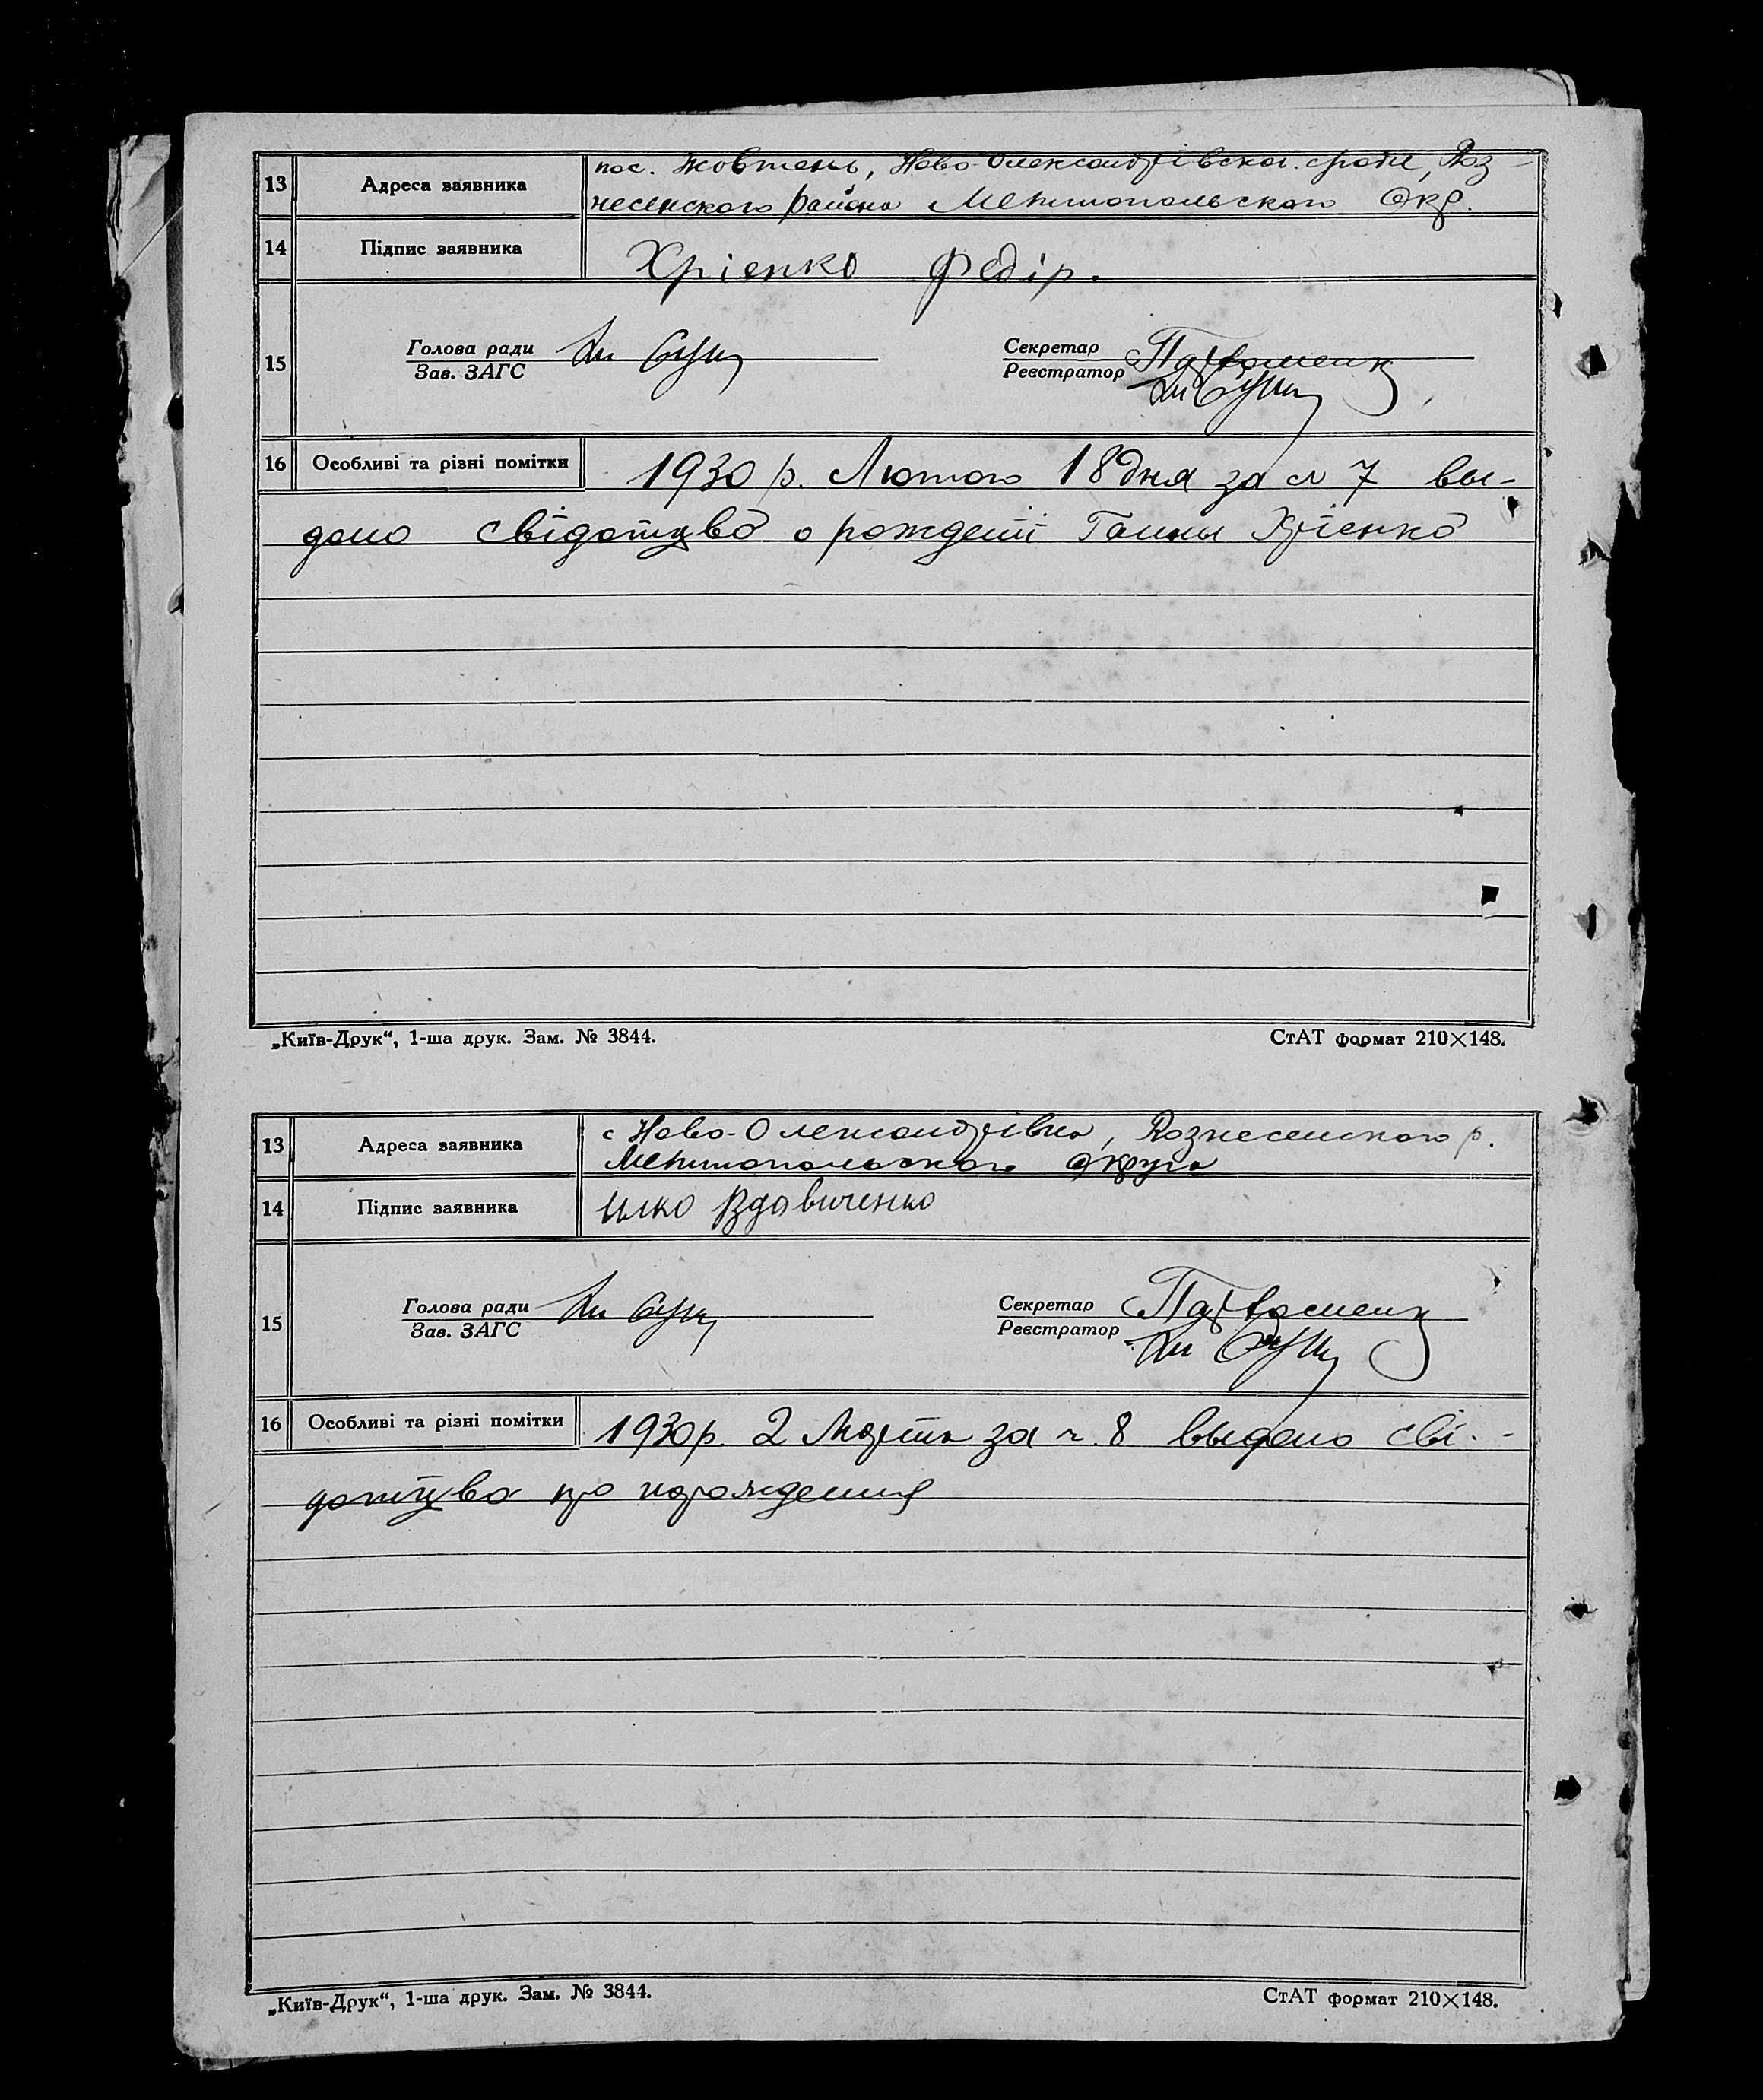 13 Адреса заявника пос. Жовтень, Ново-Олександрівскої сроте, Воз-
несенского района Мелитопольского Окр.
14 Підпис заявника Хрієнко Федір.
15 Голова ради Секретар
Зав. ЗАГС Реєстратор
16 Особливі та різні помітки 1930 р. Лютого 18 дня за № 7 вы-
дано свідотцво о рождениї Ганны Хрієнко
„Київ-Друк“, 1-ша друк. Зам. № 3844. СтАТ формат 210×148.
13 Адреса заявника с Ново-Олександрівка, Вознесенского р.
Мелитопольского округа
14 Підпис заявника Илко Вдавиченко
15 Голова ради Секретар
Зав. ЗАГС Реєстратор
16 Особливі та різні помітки 1930 р. 2 Марта за ч. 8 выдано сві-
дотцво про нарождения
„Київ-Друк“, 1-ша друк. Зам. № 3844. СтАТ формат 210×148.